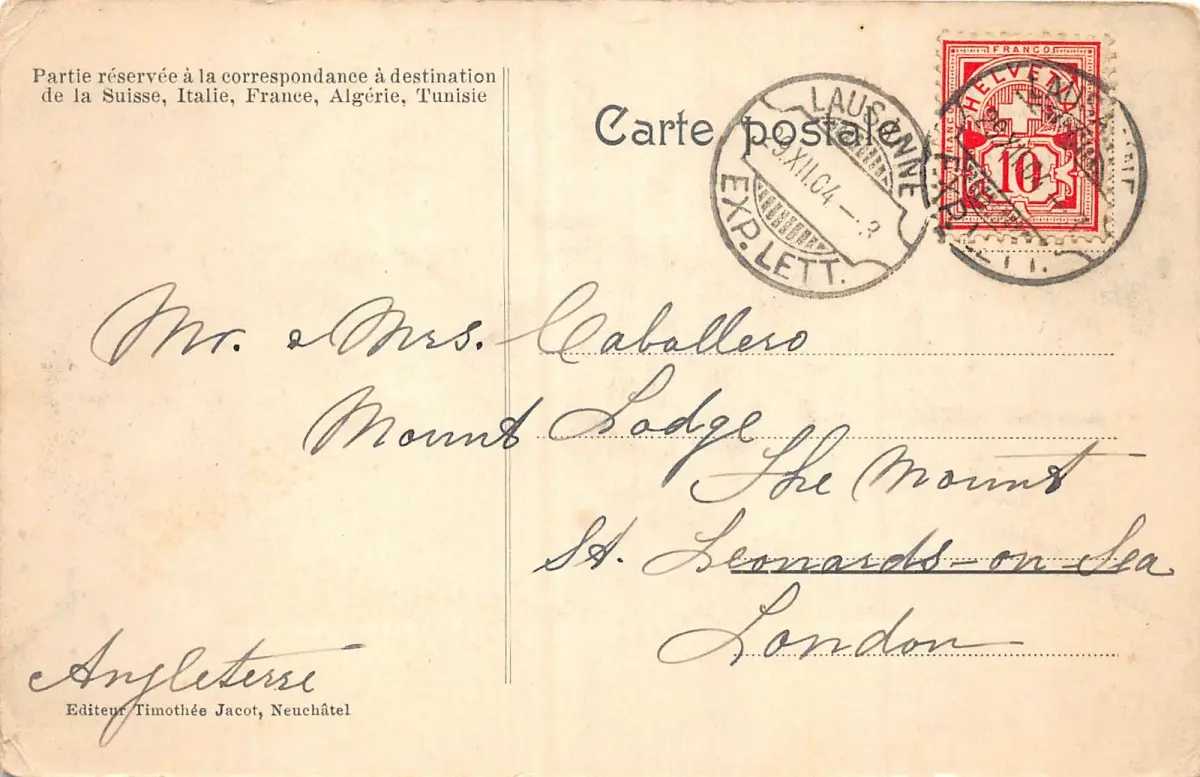 Partie réservée à la correspondance à destination
de la Suisse, Italie, France, Algérie, Tunisie
Carte postale
LAUSANNE
29.XII.04
EXP. LETT.
FRANCO
HELVETIA
FRANCO
10
EXP. LETT.
Mr. & Mrs. Caballero
Mount Lodge
The Mount
St. Leonards-on-Sea
London
Angleterre
Editeur Timothée Jacot, Neuchâtel